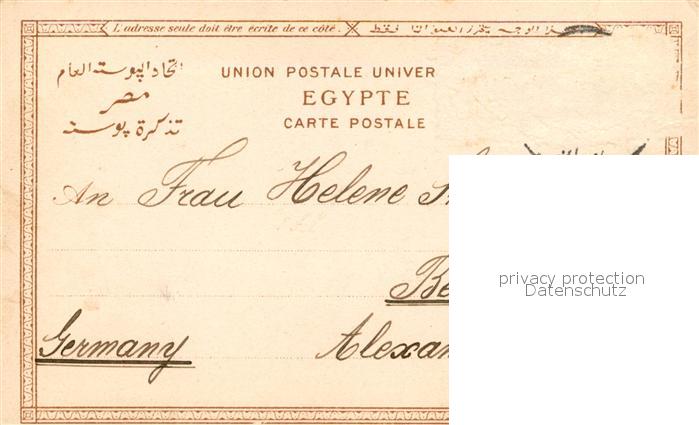 L'adresse seule doit être écrite de ce côté. هذا الوجه يتحرر العنوان فقط
اتحاد البوسته العام
مصر
تذكرة بوسته
UNION POSTALE UNIVER
EGYPTE
CARTE POSTALE
An Frau Helene
Be
Germany Alexan
privacy protection
Datenschutz